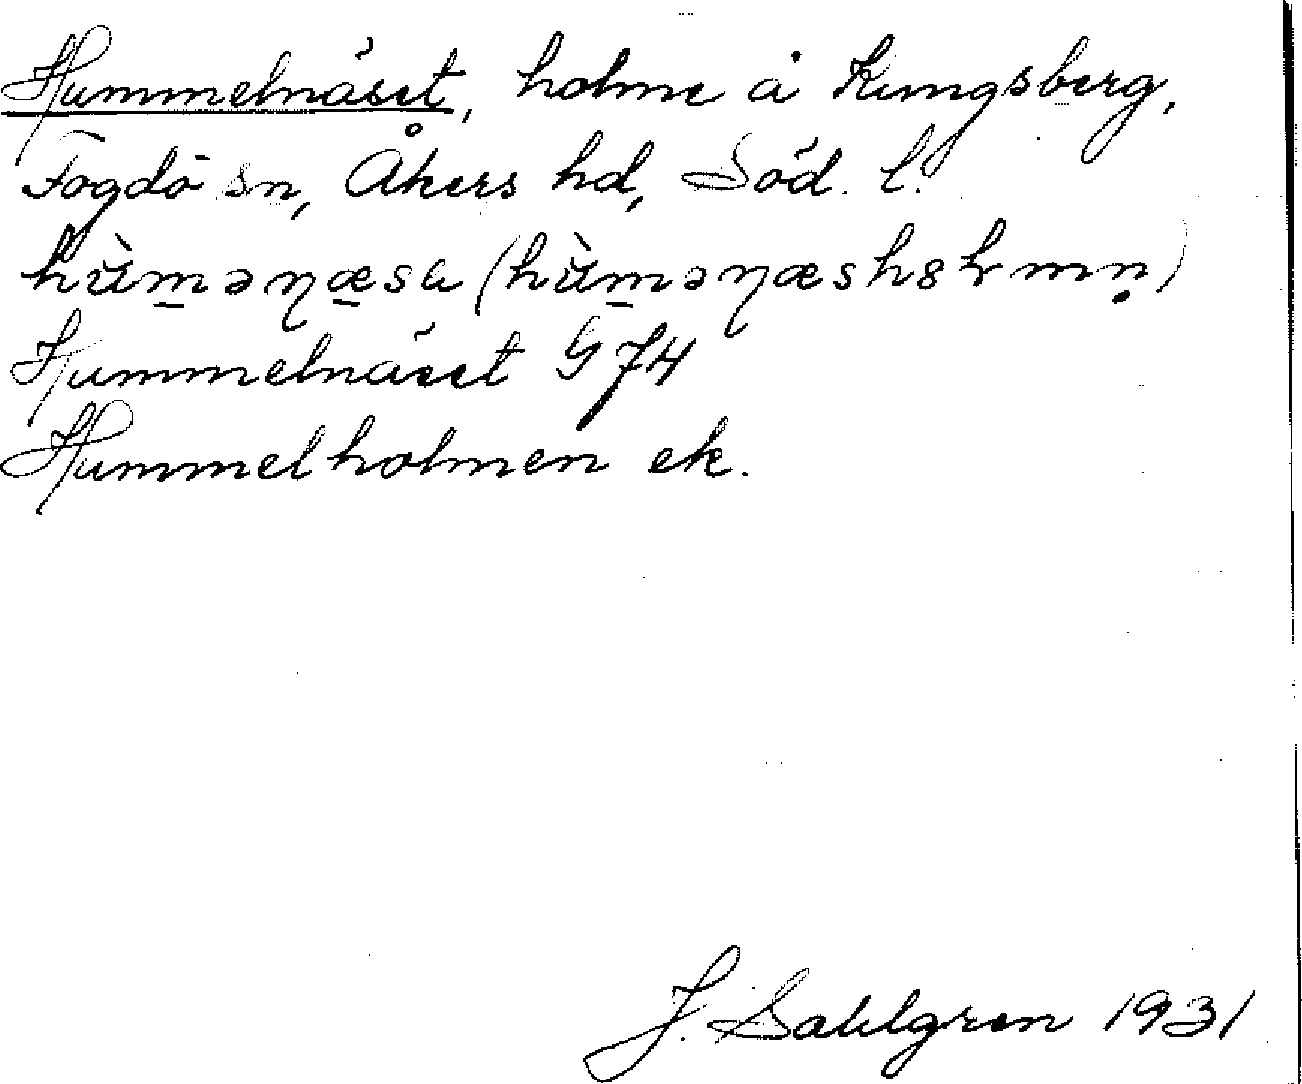 Hummelnäset, holme å Kungsberg,
Fogdö sn, Åkers hd, Söd. l.
hùmənæsa (hùmənæshɞɫmn̥)
Hummelnäset G 74
Hummelholmen ek.
J. Sahlgren 1931